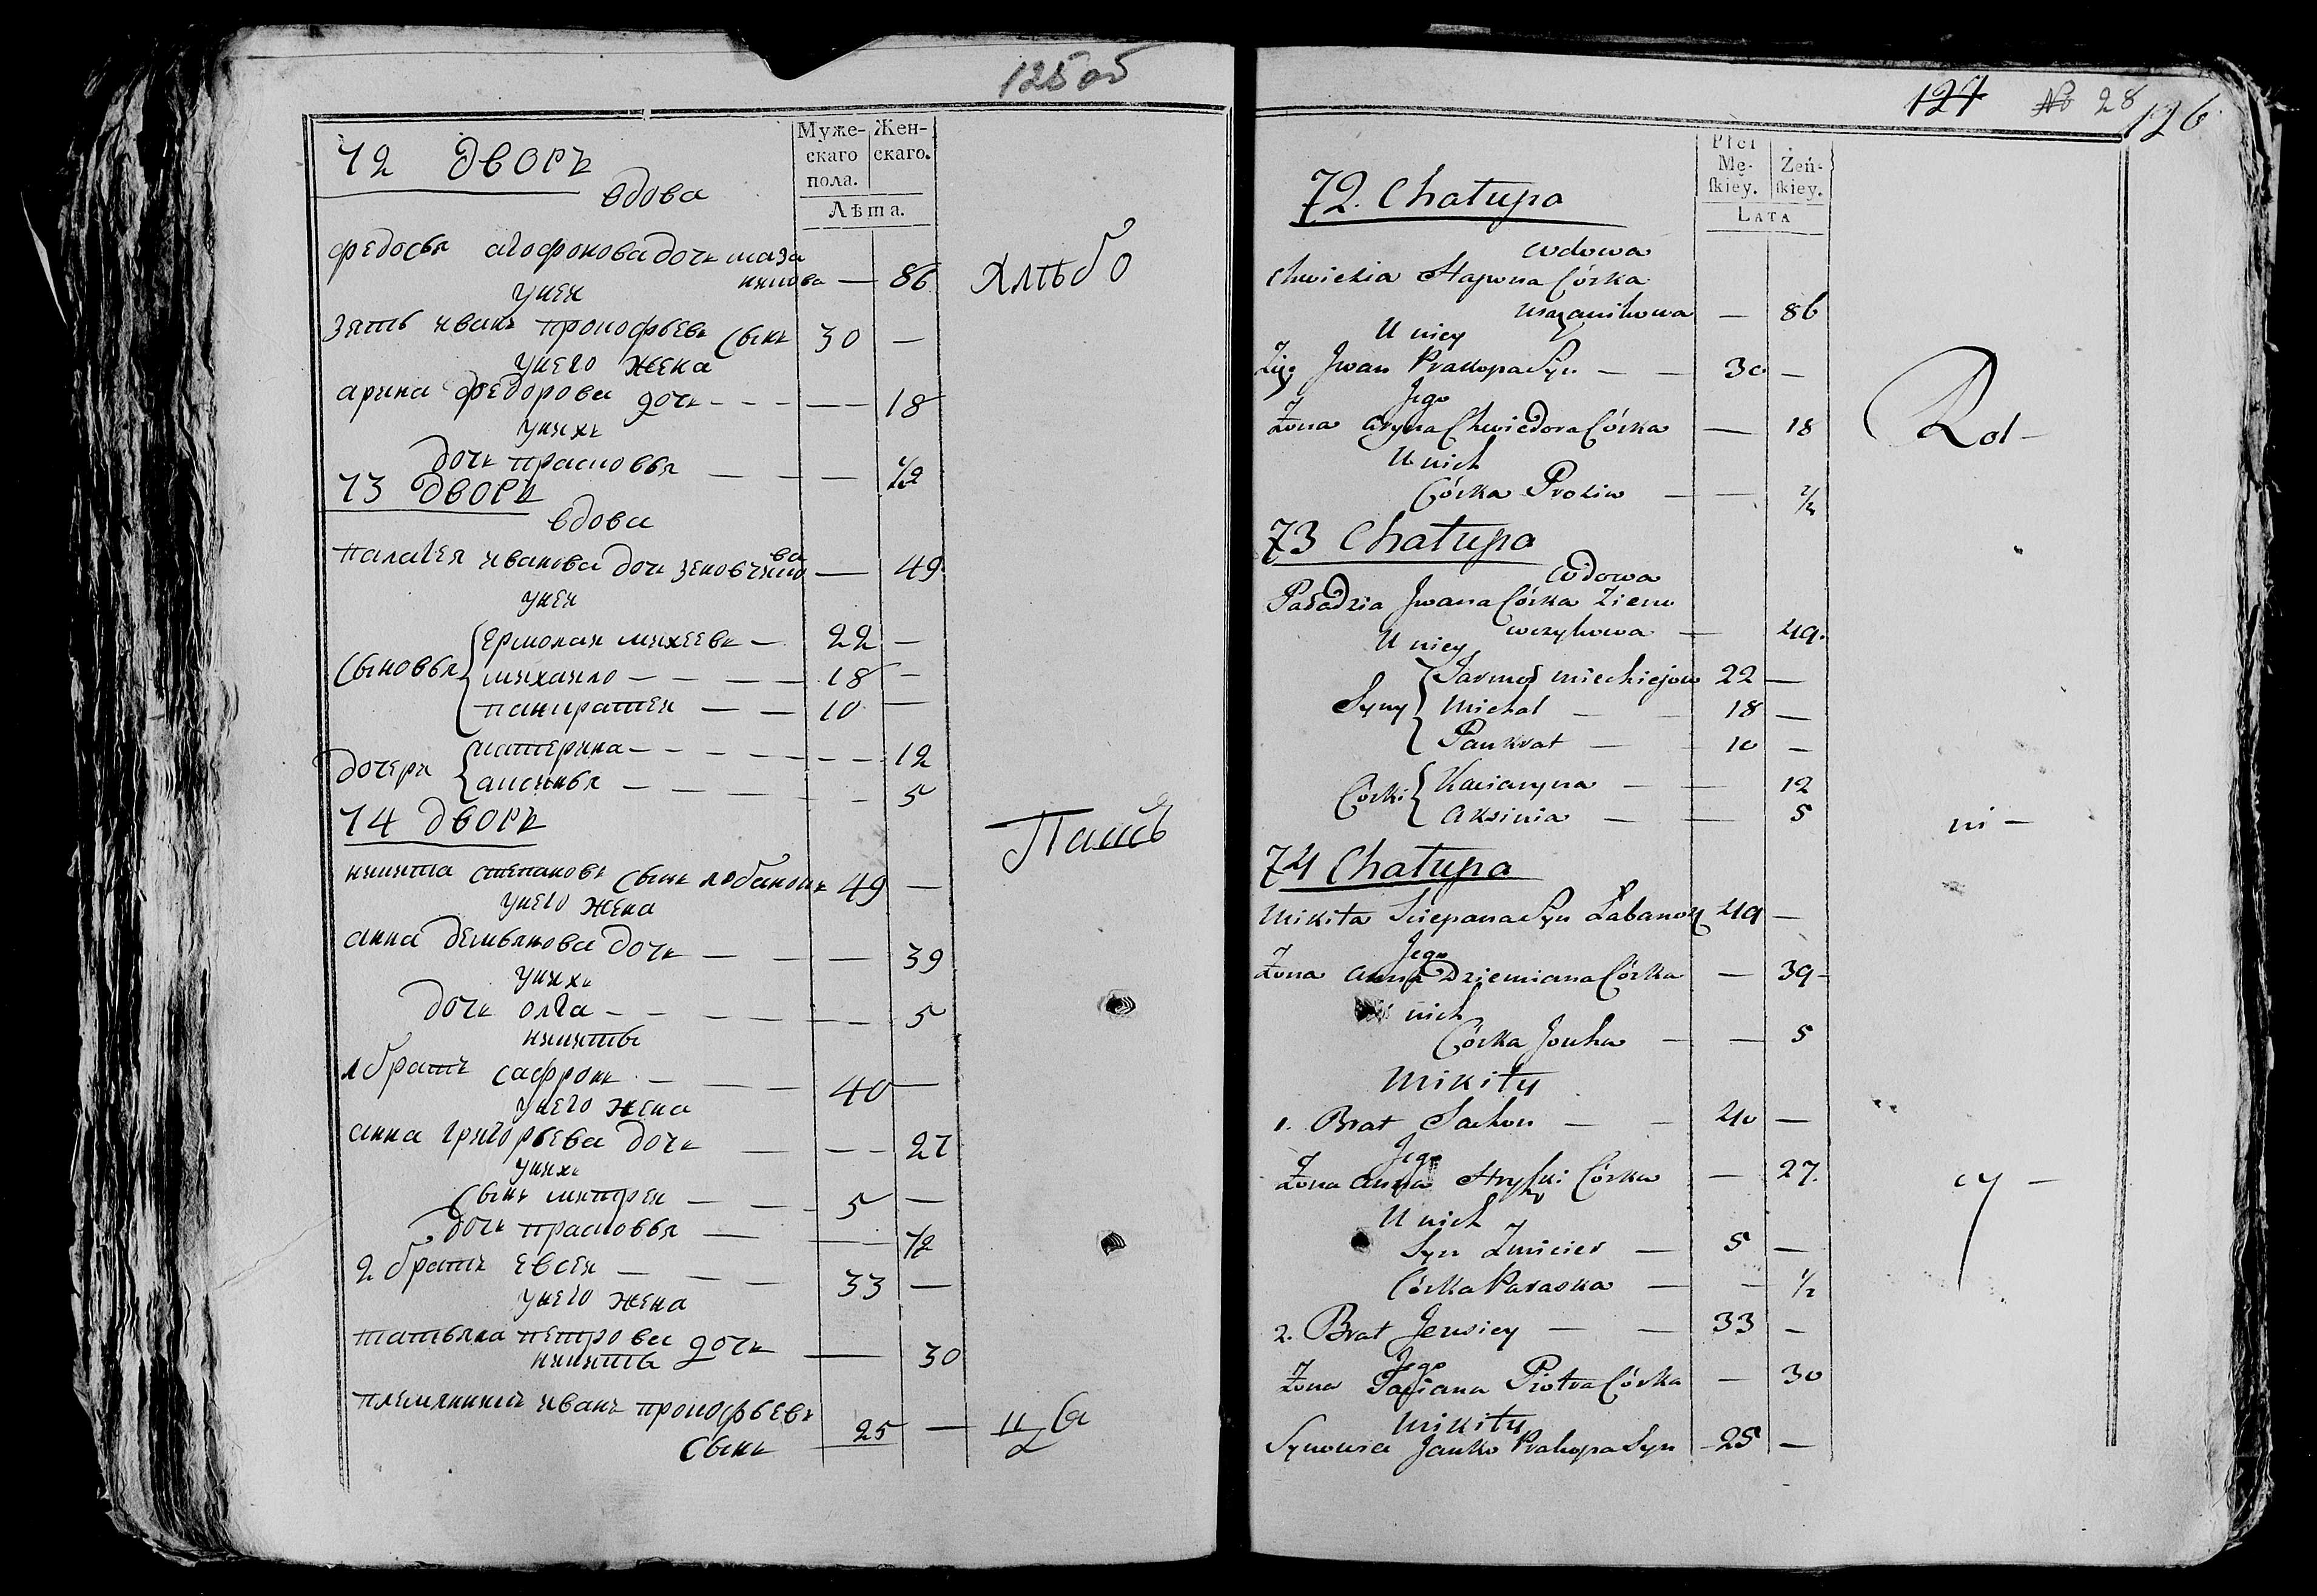 125 об
Муже-
скаго
пола.
Жен-
скаго.
Лѣта.
72 дворъ
вдова
федосья агофонова дочь маза
никова — 86
хлѣбо
у нея
зять иванъ прокофьевъ сынъ 30 —
у него жена
арина федорова дочь — — — — — 18
у нихъ
дочь прасковья — — — 1/2
73 дворъ
вдова
палагея иванова дочь зеновчико
ва — 49
у нея
сыновья { ермолай михеевъ — 22 —
михайло — — — — 18 —
панкратей — — 10 —
дочери { катерина — — — — — — 12
аксинья — — — — — 5
74 дворъ
Пашь
никита степановъ сынъ лобанокъ 49 —
у него жена
анна демьянова дочь — — — 39
у нихъ
дочь олга — — — — — 5
никиты
1 братъ сафронъ — — — 40 —
у него жена
анна григорьева дочь — — — 27
у нихъ
сынъ митрей — — — 5 —
дочь прасковья — — 1/2
2 братъ евсей — — — 33 —
у него жена
татьяна петрова дочь — 30
никиты
племянникъ иванъ прокофьевъ
сынъ 25 —
127 № 28 126
Płci
Mę-
ſkiey.
Żeń-
ſkiey.
LATA
72. Chałupa
wdowa
Chwiedzia Hapona Córka
Mazanikowa — 86
U niey
Zięć Jwan Prakopa Syn — — 30 —
Jego
Żona Aryna Chwiedora Córka — 18
Rol —
U nich
Córka — — 1/2
73 Chałupa
wdowa
Paładzia Jwana Córka Zieno
wczykowa — 49.
U niey
Syny { Jarmoł Miechiejow 22 —
Michał — — 18 —
Pankrat — — 10 —
Córki { Kaciaryna — — 12
Aksinia — — 5
ni —
74 Chałupa
Mikita Sciepana Syn Łabanok 49 —
Jego
Żona Anna Dziemiana Córka — 39 —
nich
Córka — — 5
Mikity
1. Brat Sachon — — 40 —
Jego
Żona Anna Hryszki Córka — 27.
cy —
U nich
Syn Zmicier — 5 —
Córka Paraska — — 1/2
2. Brat Jewsiey — — 33 —
Jego
Żona Taciana Piotra Córka — 30
Mikity
Synowiec Janko Prakopa Syn 25 —